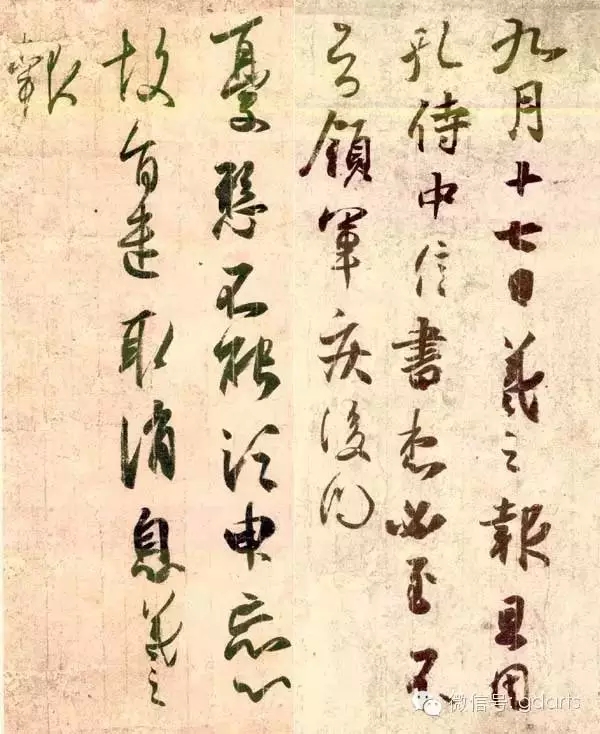 九月十七日羲之報且因
孔侍中信書想必至不
知領軍疾後問
憂懸不能須臾忘心
故旨遣取消息羲之
報
微信号: gdarts